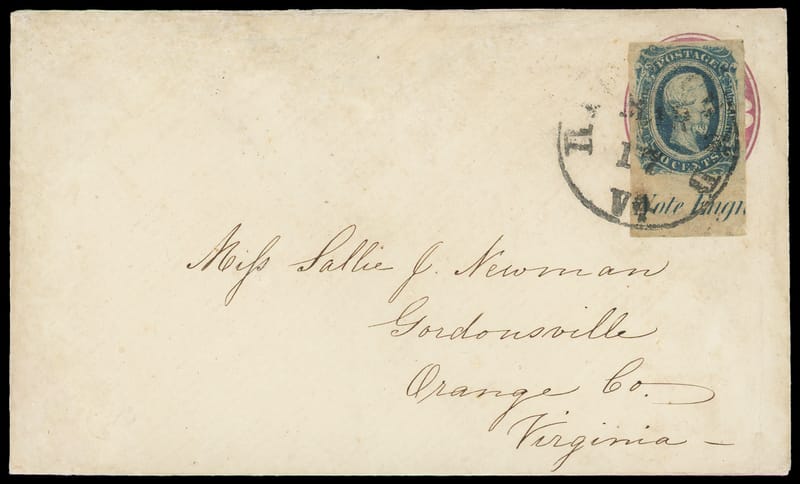 POSTAGE
CENTS
Note Engr
VA
Miss Sallie J. Newman
Gordonsville
Orange Co.
Virginia –